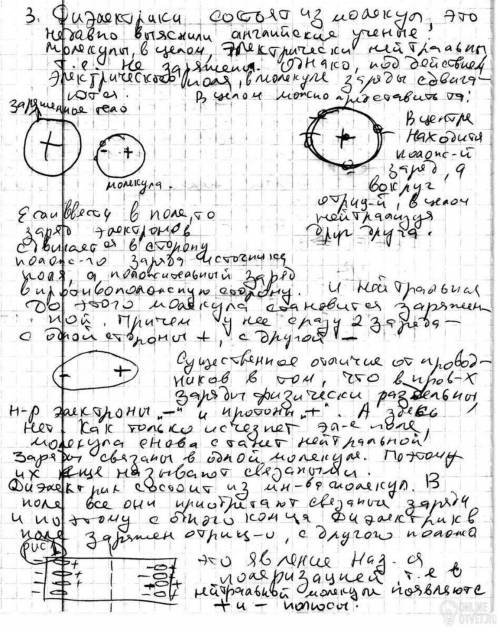 3. Диэлектрики состоят из молекул, это
недавно выяснили английские ученые,
молекулы, в целом, электрически нейтральны
т.е. не заряжены. Однако, под действием
электрического поля, в молекуле заряды сдвига-
ются. В целом можно представить та:
заряженное тело
+
- +
молекула.
+
В центре
находится
полож-й
заряд, а
вокруг
отриц-й, в целом
нейтрализуя
друг друга.
Если ввести в поле, то
заряд электронов
сдвигается в сторону
полож-го заряда источника
поля, а положительный заряд
в противоположную сторону. И нейтральная
до этого молекула становится заряжен-
ной. Причем у нее сразу 2 заряда-
с одной стороны +, с другой -
- +
Существенное отличие от провод-
ников в том, что в пров-х
заряды физически раздельны,
н-р электроны "-" и протоны "+". А здесь
нет. Как только исчезнет эл-е поле,
молекула снова станет нейтральной!
Заряды связаны в одной молекуле. Поэтому
их еще называют связаными.
Диэлектрик состоит из мн-ва молекул. В
поле все они приобретают связаный заряды
и поэтому с одного конца диэлектрик в
поле заряжен отриц-о, с другого полож
рис
это явление наз-ся
поляризацией т.е в
нейтральной молекуле появляются
+ и - полюсы.
ONLINE
OTVET.RU